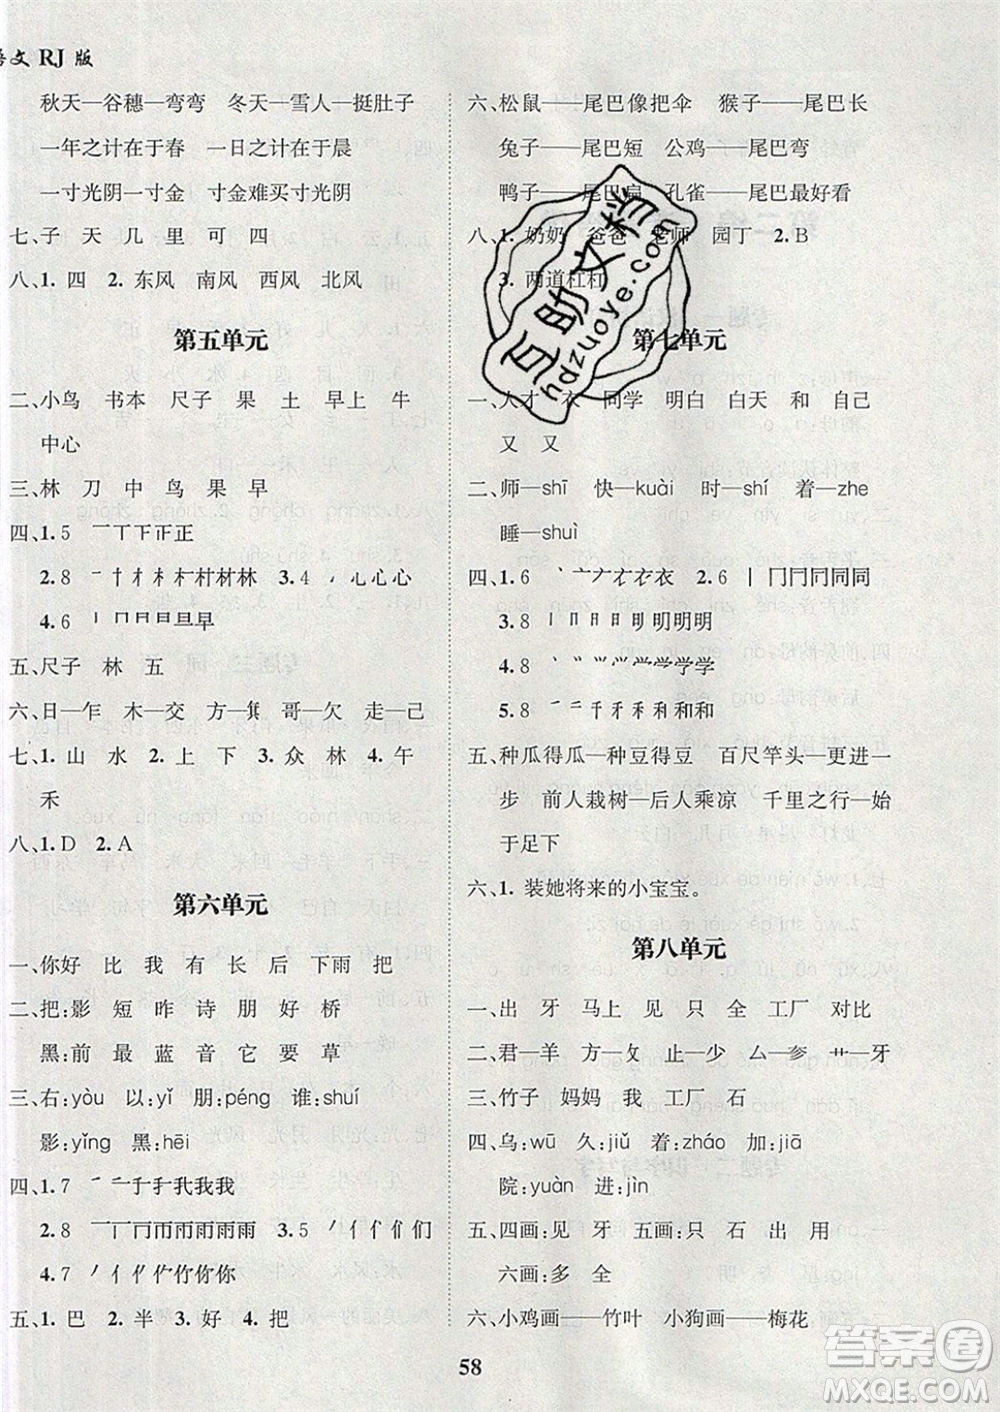 语文 RJ 版
秋天—谷穗—弯弯　冬天—雪人—挺肚子
一年之计在于春　一日之计在于晨
一寸光阴一寸金　寸金难买寸光阴
七、子　天　几　里　可　四
八、1. 四　2. 东风　南风　西风　北风
第五单元
二、小鸟　书本　尺子　果　土　早上　牛
中心
三、林　刀　中　鸟　果　早
四、1. 5
2. 8　3. 4
4. 6
五、尺子　林　五
六、日—乍　木—交　方—　哥—欠　走—己
七、1. 山　水　2. 上　下　3. 众　林　4. 午
禾
八、1. D　2. A
第六单元
一、你好　比　我　有　长　后　下雨　把
二、把:影　短　昨　诗　朋　好　桥
黑:前　最　蓝　音　它　要　草
三、右:yòu　以:yǐ　朋:péng　谁:shuí
影:yǐng　黑:hēi
四、1. 7
2. 8　3. 5
4. 7
五、1. 巴　2. 半　3. 好　4. 把
六、松鼠——尾巴像把伞　猴子——尾巴长
兔子——尾巴短　公鸡——尾巴弯
鸭子——尾巴扁　孔雀——尾巴最好看
八、1. 奶奶　爸爸　老师　园丁　2. B
3. 两道杠杠
第七单元
一、人才　衣　同学　明白　白天　和　自己
又　又
二、师—shī　快—kuài　时—shí　着—zhe
睡—shuì
四、1. 6　2. 6
3. 8
4. 8
5. 8
五、种瓜得瓜—种豆得豆　百尺竿头—更进一
步　前人栽树—后人乘凉　千里之行—始
于足下
六、1. 装她将来的小宝宝。
第八单元
一、出　牙　马上　见　只　全　工厂　对比
二、君—羊　方—攵　止—少　厶—　艹—牙
三、竹子　妈妈　我　工厂　石
四、乌:wū　久:jiǔ　着:zháo　加:jiā
院:yuàn　进:jìn
五、四画:见　牙　五画:只　石　出　用
六画:多　全
六、小鸡画——竹叶　小狗画——梅花
58
百助文档
ypdzuoye.com
答案圈
MXQE.COM